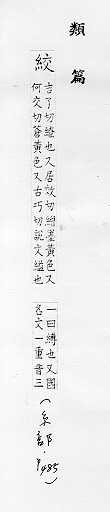 類篇
絞
吉了切縊也又居效切繒黃色又
何交切蒼黃色又古巧切說文縊也
一曰縛也又國
名文一重音三
(糸部·P485)